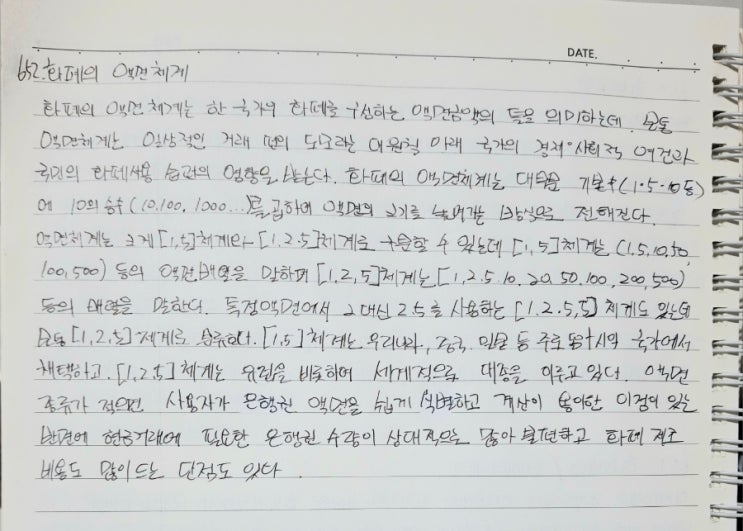 DATE.
652. 화폐의 액면체계
화폐의 액면체계는 한 국가의 화폐를 구성하는 액면금액의 들을 의미하는데. 보통
액면체계는 일상적인 거래 편의 도모라는 대원칙 아래 국가의 경제·사회적 여건과
국민의 화폐사용 습관의 영향을 받는다. 화폐의 액면체계는 대부분 기본수(1·5·10등)
에 10의 승수(10,100, 1000...)를 곱하여 액면의 크기를 높여가는 방식으로 정해진다.
액면체계는 크게 [1,5]체계와 [1.2.5]체계로 구분할 수 있는데 [1,5]체계는 (1,5,10,50,
100,500) 등의 액면배열을 말하며 [1,2,5]체계는 [1,2.5.10.20.50.100,200,500)
등의 배열을 말한다. 특정액면에서 2 대신 2.5를 사용하는 [1.2.5,5] 체계도 있는데
보통 [1,2.5] 체계로 분류한다. [1,5] 체계는 우리나라, 중국, 일본 등 주로 동아시아 국가에서
채택하고. [1,2,5] 체계는 유럽을 비롯하여 세계적으로 대종을 이루고 있다. 액면
종류가 적으면 사용자가 은행권 액면을 쉽게 식별하고 계산이 용이한 이점이 있는
반면에 현금거래에 필요한 은행권 수량이 상대적으로 많아 불편하고 화폐 제조
비용도 많이 드는 단점도 있다.